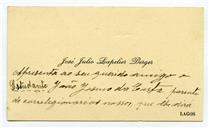 José Julio Lapelier Berger
Apresenta ao seu querido amigo o
Estudante João Jesus da Costa, parente
de correligionarios nossos, que lhe dira
LAGOS